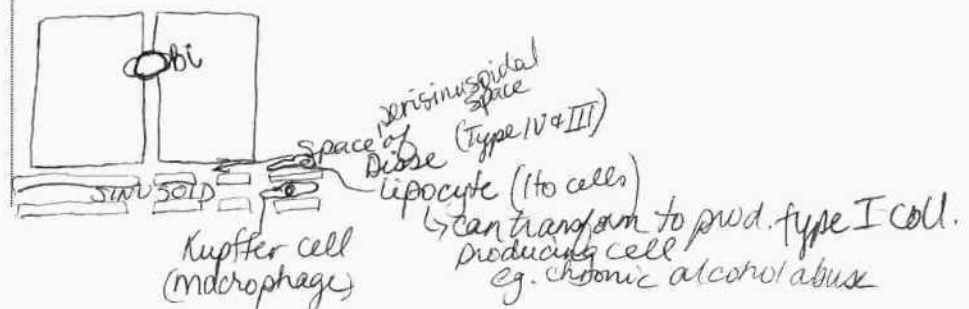 Bi
perisinusoidal
space
Space of
Disse (Type IV & III)
SINUSOID
Lipocyte (Ito cells)
↳ can transform to prod. type I coll.
producing cell
eg. chronic alcohol abuse
Kupffer cell
(macrophage)